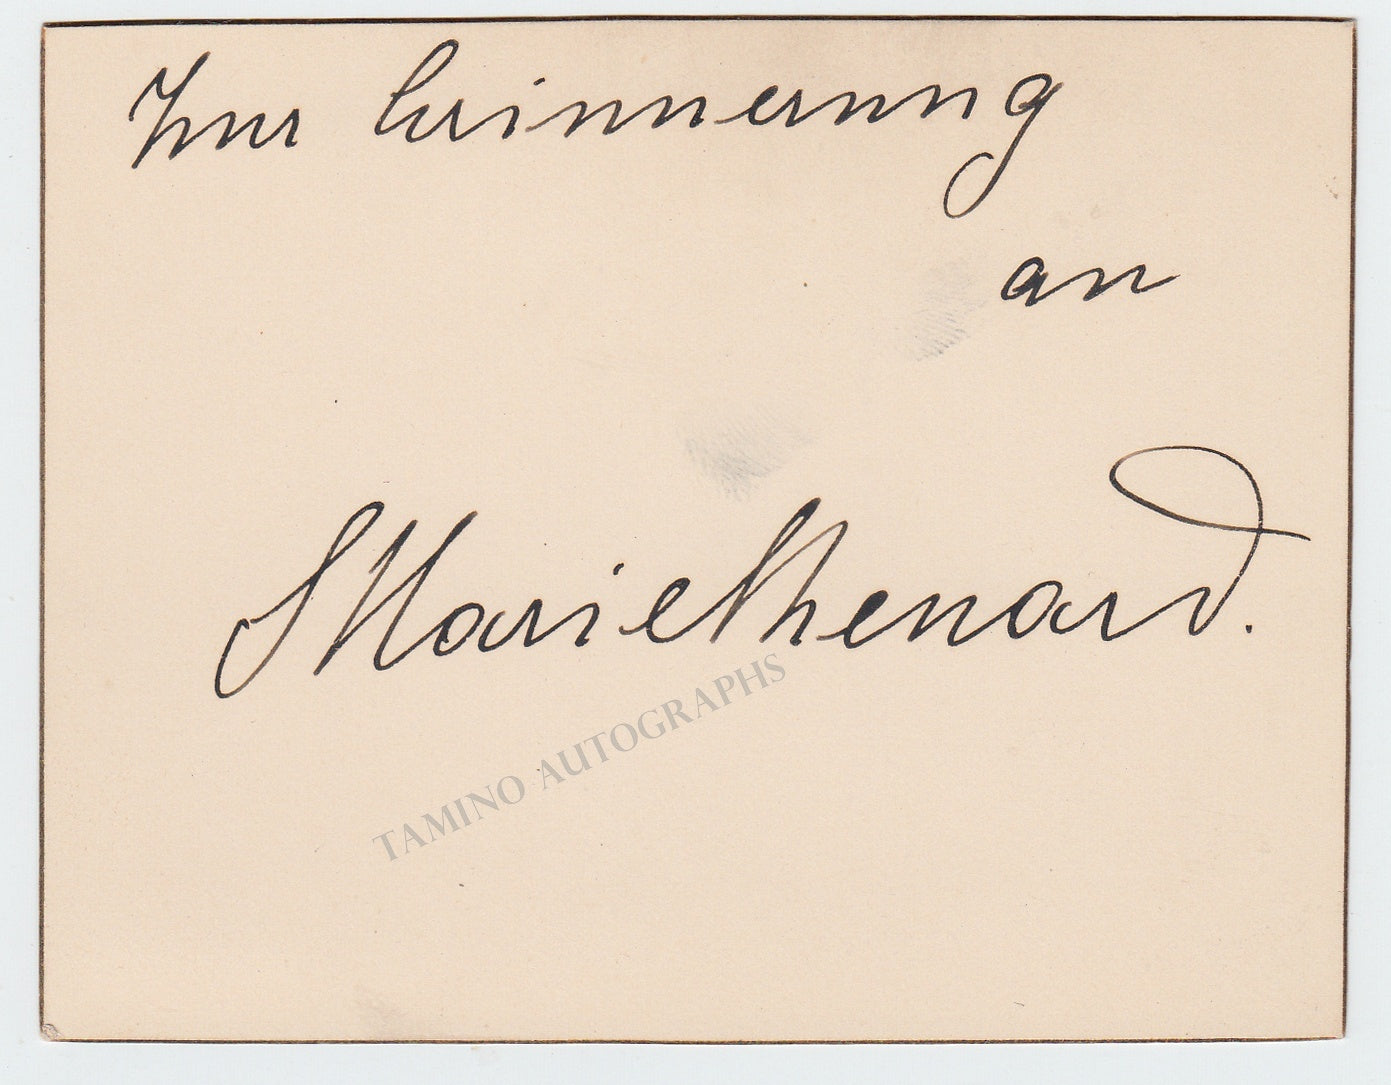 Zur Erinnerung
an
Marie Renard.
TAMINO AUTOGRAPHS